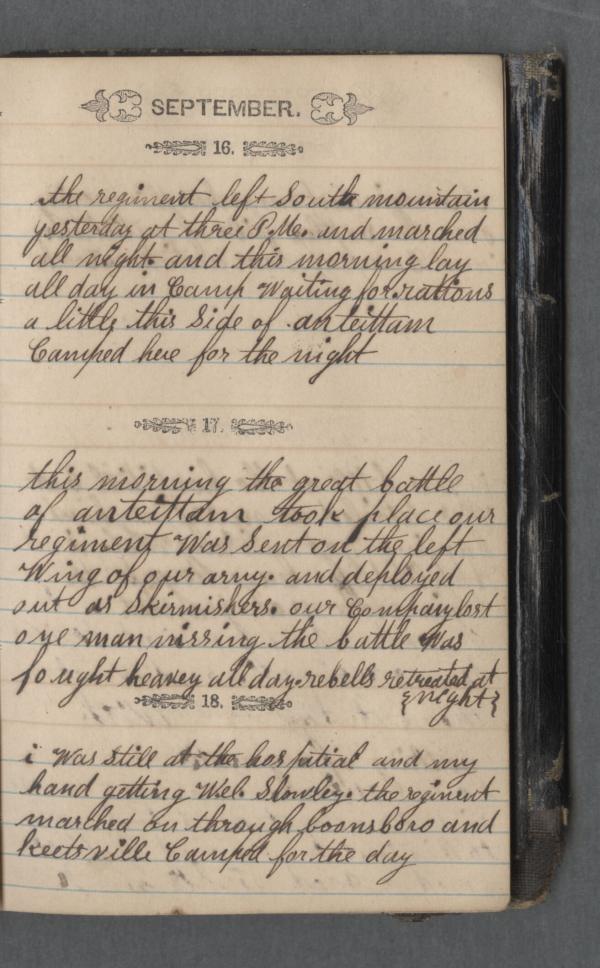 SEPTEMBER.
16.
the regiment left South mountain
yesterday at three P.M. and marched
all night and this morning lay
all day in Camp Waiting for rations
a little this Side of anteittam
Camped here for the night
17.
this morning the great battle
of anteittam took place our
regiment Was Sent on the left
Wing of our army. and deployed
out as Skirmishers. our Company lost
one man missing the battle Was
fought heavey all day. rebells retreated at
night
18.
i Was Still at the hospitial and my
hand getting Wel. Slowley. the regiment
marched on through boonsboro and
keetsville Camped for the day